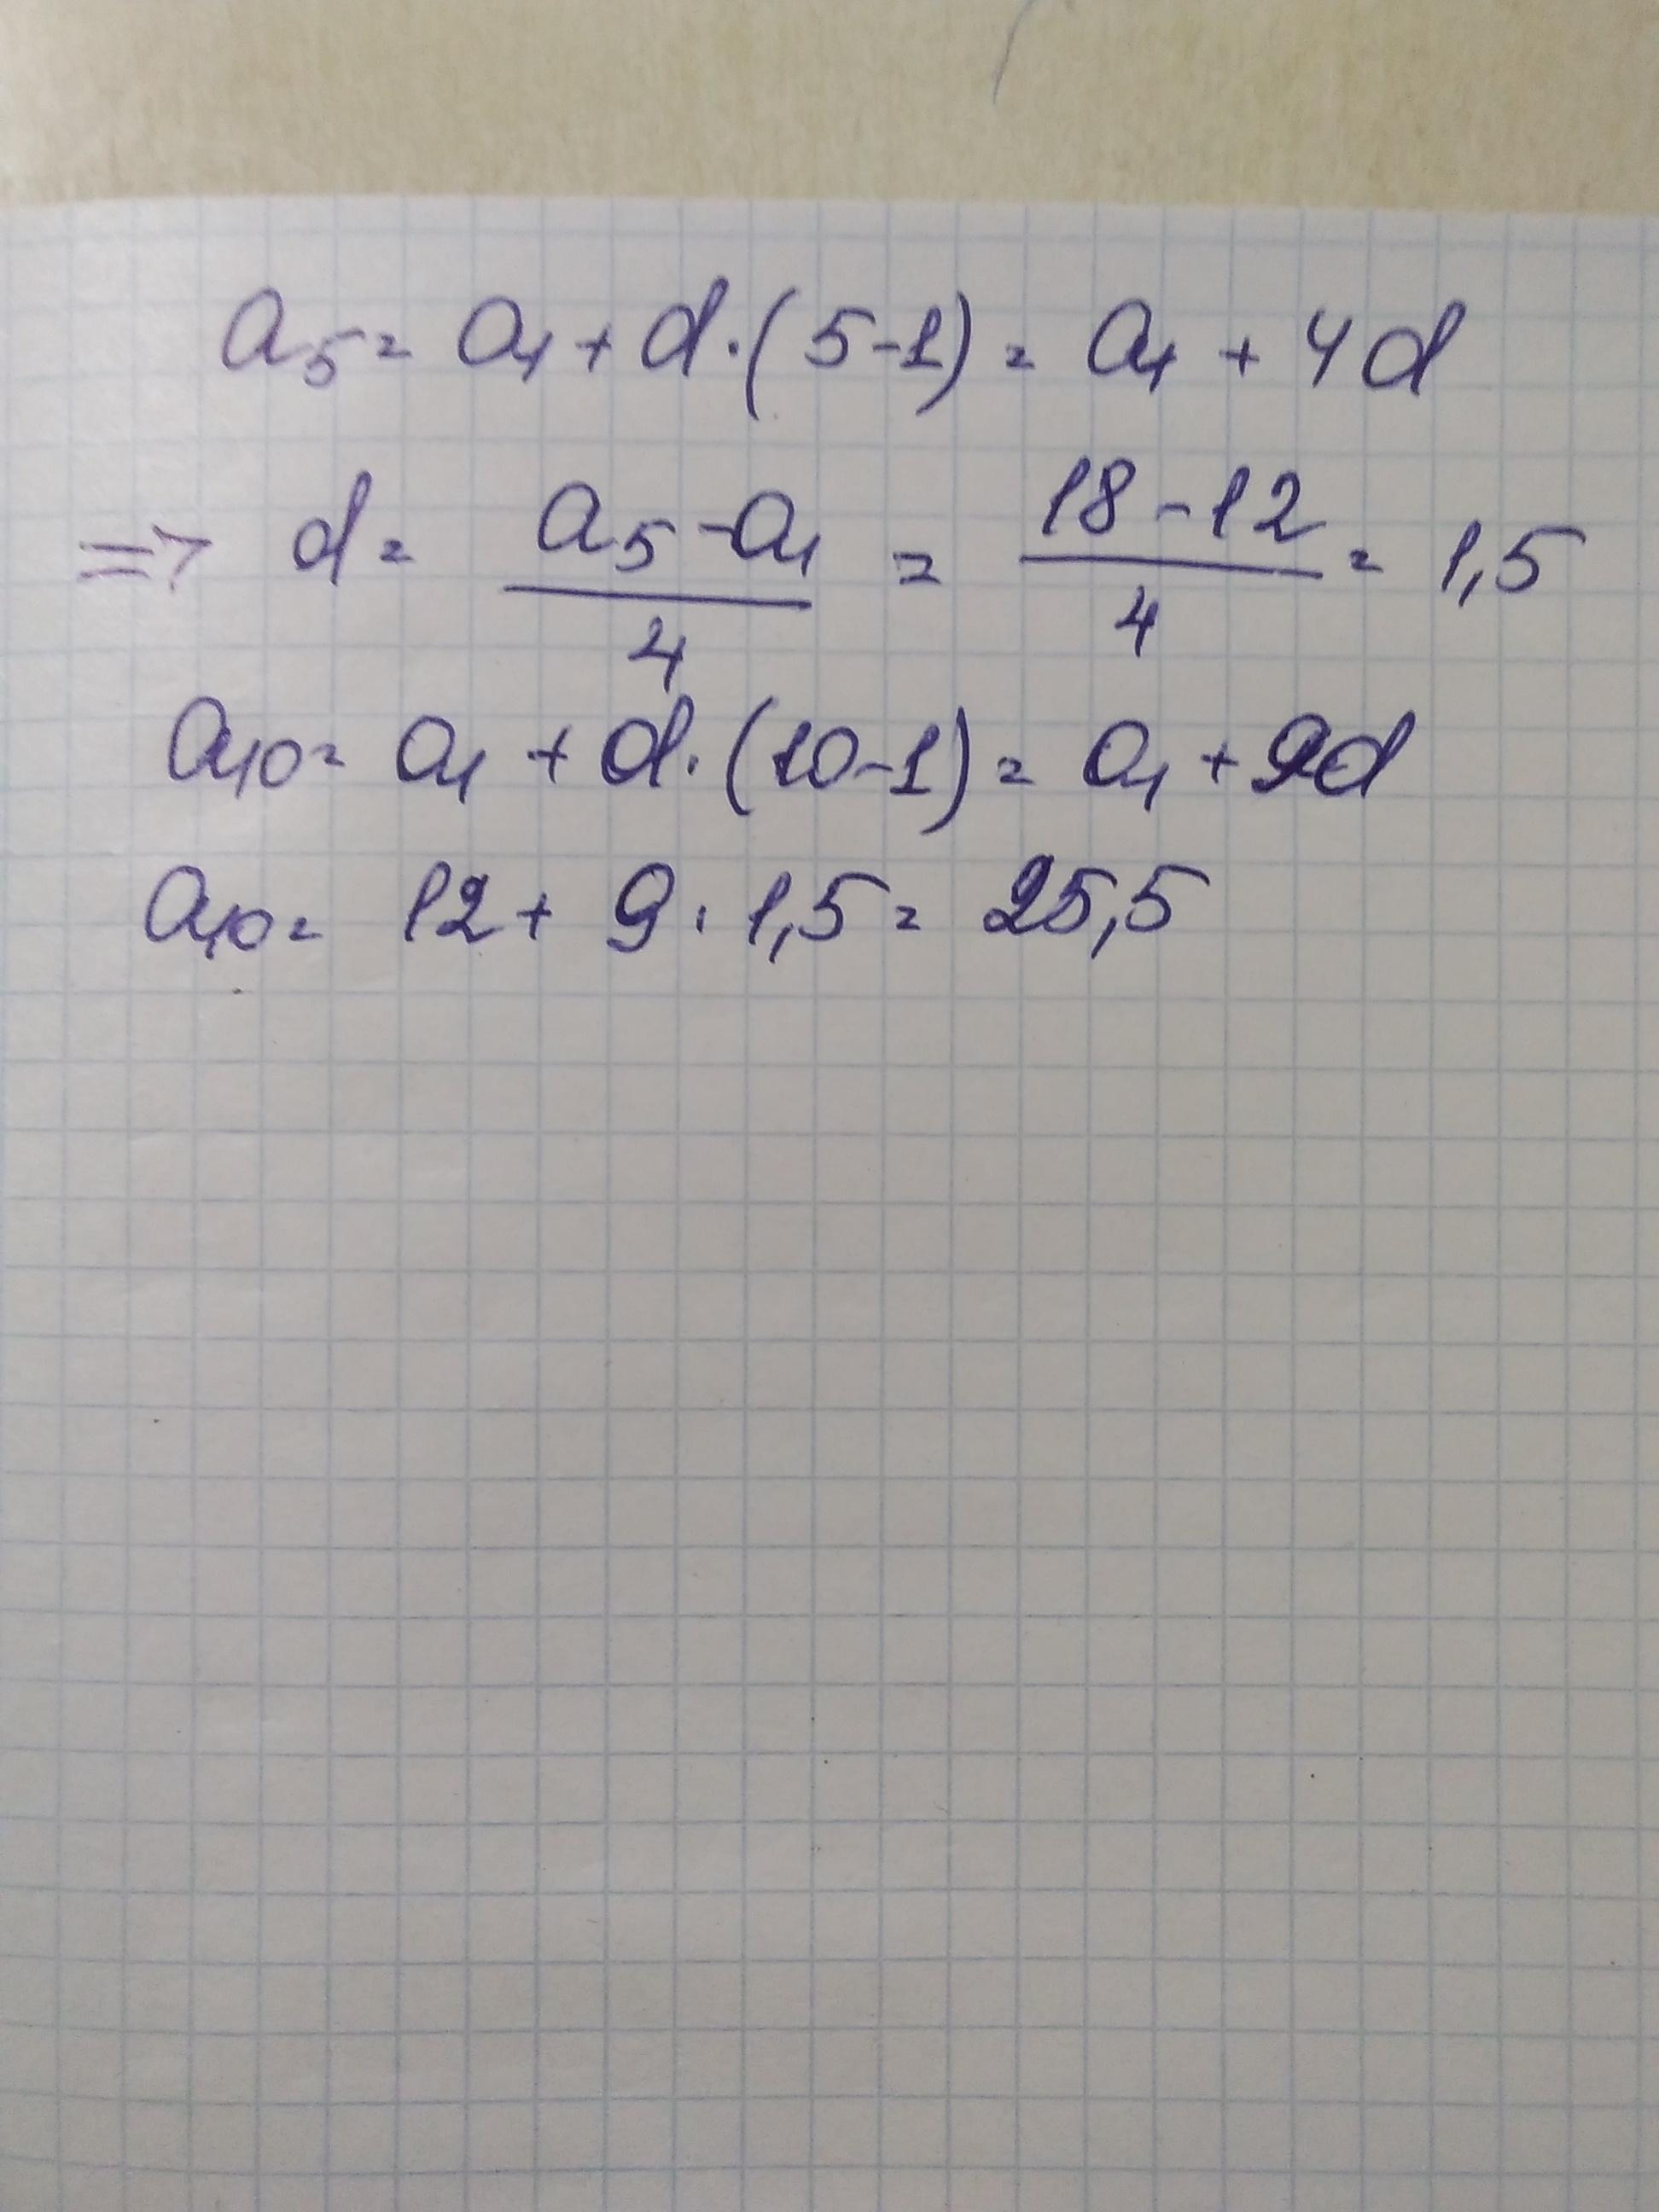 a₅ = a₁ + d·(5-1) = a₁ + 4d
=> d = (a₅ - a₁)/4 = (18-12)/4 = 1,5
a₁₀ = a₁ + d·(10-1) = a₁ + 9d
a₁₀ = 12 + 9 · 1,5 = 25,5